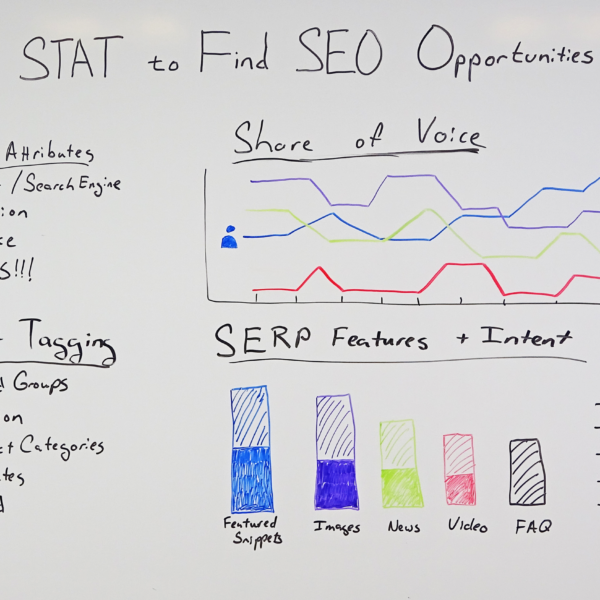 STAT to Find SEO Opportunities
Attributes
/Search Engine
ion
ce
S!!!
Tagging
Groups
on
t Categories
tes
Share of Voice
SERP Features + Intent
Featured
Snippets
Images
News
Video
FAQ